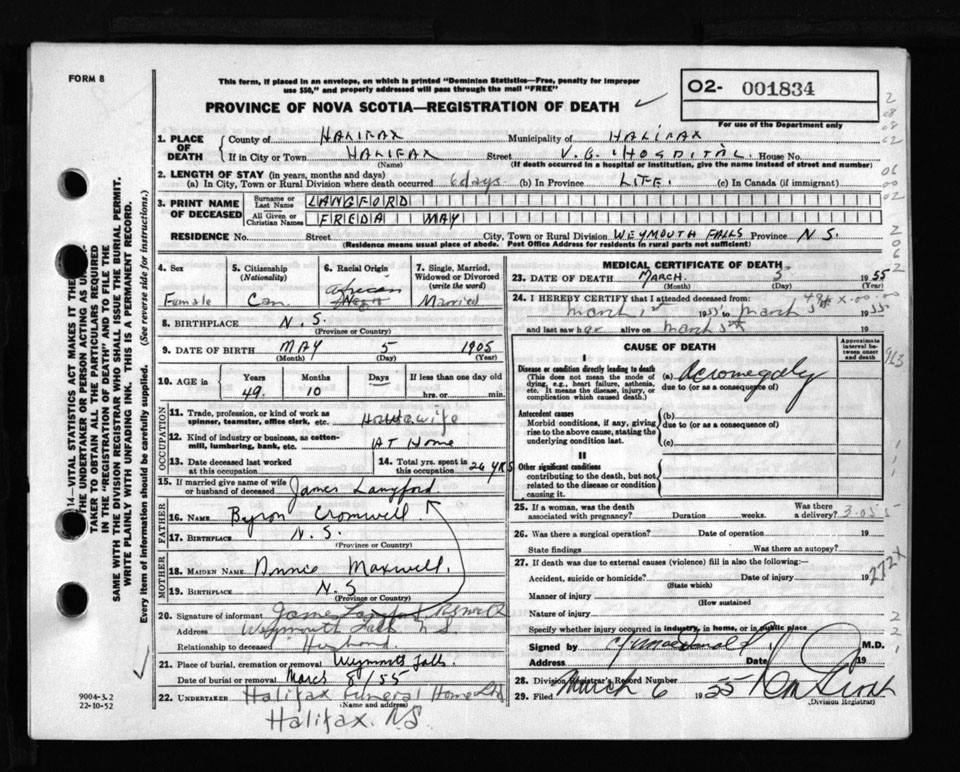 FORM 8
This form, if placed in an envelope, on which is printed "Dominion Statistics—Free, penalty for improper
use $50," and properly addressed will pass through the mail "FREE"
PROVINCE OF NOVA SCOTIA—REGISTRATION OF DEATH
O2- 001834
For use of the Department only
1. PLACE OF DEATH
County of HALIFAX Municipality of HALIFAX
If in City or Town HALIFAX Street V.G. HOSPITAL. House No.
(Name) (If death occurred in a hospital or institution, give the name instead of street and number)
2. LENGTH OF STAY (in years, months and days)
(a) In City, Town or Rural Division where death occurred 6 days (b) In Province LIFE. (c) In Canada (if immigrant)
3. PRINT NAME OF DECEASED
Surname or Last Name LANGFORD
All Given or Christian Names FREDA MAY
RESIDENCE No. Street City, Town or Rural Division WEYMOUTH FALLS Province N S.
(Residence means usual place of abode. Post Office Address for residents in rural parts not sufficient)
4. Sex
Female
5. Citizenship
(Nationality)
Can.
6. Racial Origin
African
7. Single, Married, Widowed or Divorced
(write the word)
Married
8. BIRTHPLACE N.S.
(Province or Country)
9. DATE OF BIRTH MAY 5 1905
(Month) (Day) (Year)
10. AGE in
Years Months Days If less than one day old
49. 10 hrs. or min.
OCCUPATION
11. Trade, profession, or kind of work as
spinner, teamster, office clerk, etc. Housewife
12. Kind of industry or business, as cotton-
mill, lumbering, bank, etc. At Home
13. Date deceased last worked
at this occupation
14. Total yrs. spent in
this occupation 26 YRS
15. If married give name of wife
or husband of deceased James Langford
FATHER
16. NAME Byron Cromwell
17. BIRTHPLACE N.S.
(Province or Country)
MOTHER
18. MAIDEN NAME Annie Maxwell.
19. BIRTHPLACE N.S
(Province or Country)
20. Signature of informant James Langford
Address Weymouth Falls N S
Relationship to deceased Husband.
21. Place of burial, cremation or removal Weymouth Falls.
Date of burial or removal March 8/55
22. UNDERTAKER Halifax Funeral Home Ltd
(Name and address)
Halifax. N.S.
MEDICAL CERTIFICATE OF DEATH
23. DATE OF DEATH MARCH 5 1955
(Month) (Day) (Year)
24. I HEREBY CERTIFY that I attended deceased from:
March 1st 1955 to March 5th 1955
and last saw her alive on March 5th 19
CAUSE OF DEATH
Approximate interval between onset and death
I
Disease or condition directly leading to death
(This does not mean the mode of
dying, e.g., heart failure, asthenia,
etc. It means the disease, injury, or
complication which caused death.)
(a) Acromegaly
due to (or as a consequence of)
Antecedent causes
Morbid conditions, if any, giving
rise to the above cause, stating the
underlying condition last.
(b)
due to (or as a consequence of)
(c)
II
Other significant conditions
contributing to the death, but not
related to the disease or condition
causing it.
25. If a woman, was the death
associated with pregnancy? Duration weeks. Was there
a delivery? 3.05.5
26. Was there a surgical operation? Date of operation 19
State findings Was there an autopsy?
27. If death was due to external causes (violence) fill in also the following:—
Accident, suicide or homicide? Date of injury 19
(State which)
Manner of injury
(How sustained
Nature of injury
Specify whether injury occurred in industry, in home, or in public place
Signed by M.D.
Address Date 19
28. Division Registrar's Record Number
29. Filed March 6 1955
(Division Registrar)
14—VITAL STATISTICS ACT MAKES IT THE
THE UNDERTAKER OR PERSON ACTING AS
TAKER TO OBTAIN ALL THE PARTICULARS REQUIRED
IN THE "REGISTRATION OF DEATH" AND TO FILE THE
SAME WITH THE DIVISION REGISTRAR WHO SHALL ISSUE THE BURIAL PERMIT.
WRITE PLAINLY WITH UNFADING INK. THIS IS A PERMANENT RECORD.
Every item of information should be carefully supplied. (See reverse side for instructions.)
9004-3.2
22-10-52